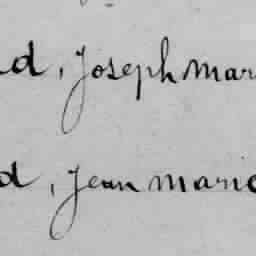 d, Joseph Mar
d, Jean Marie